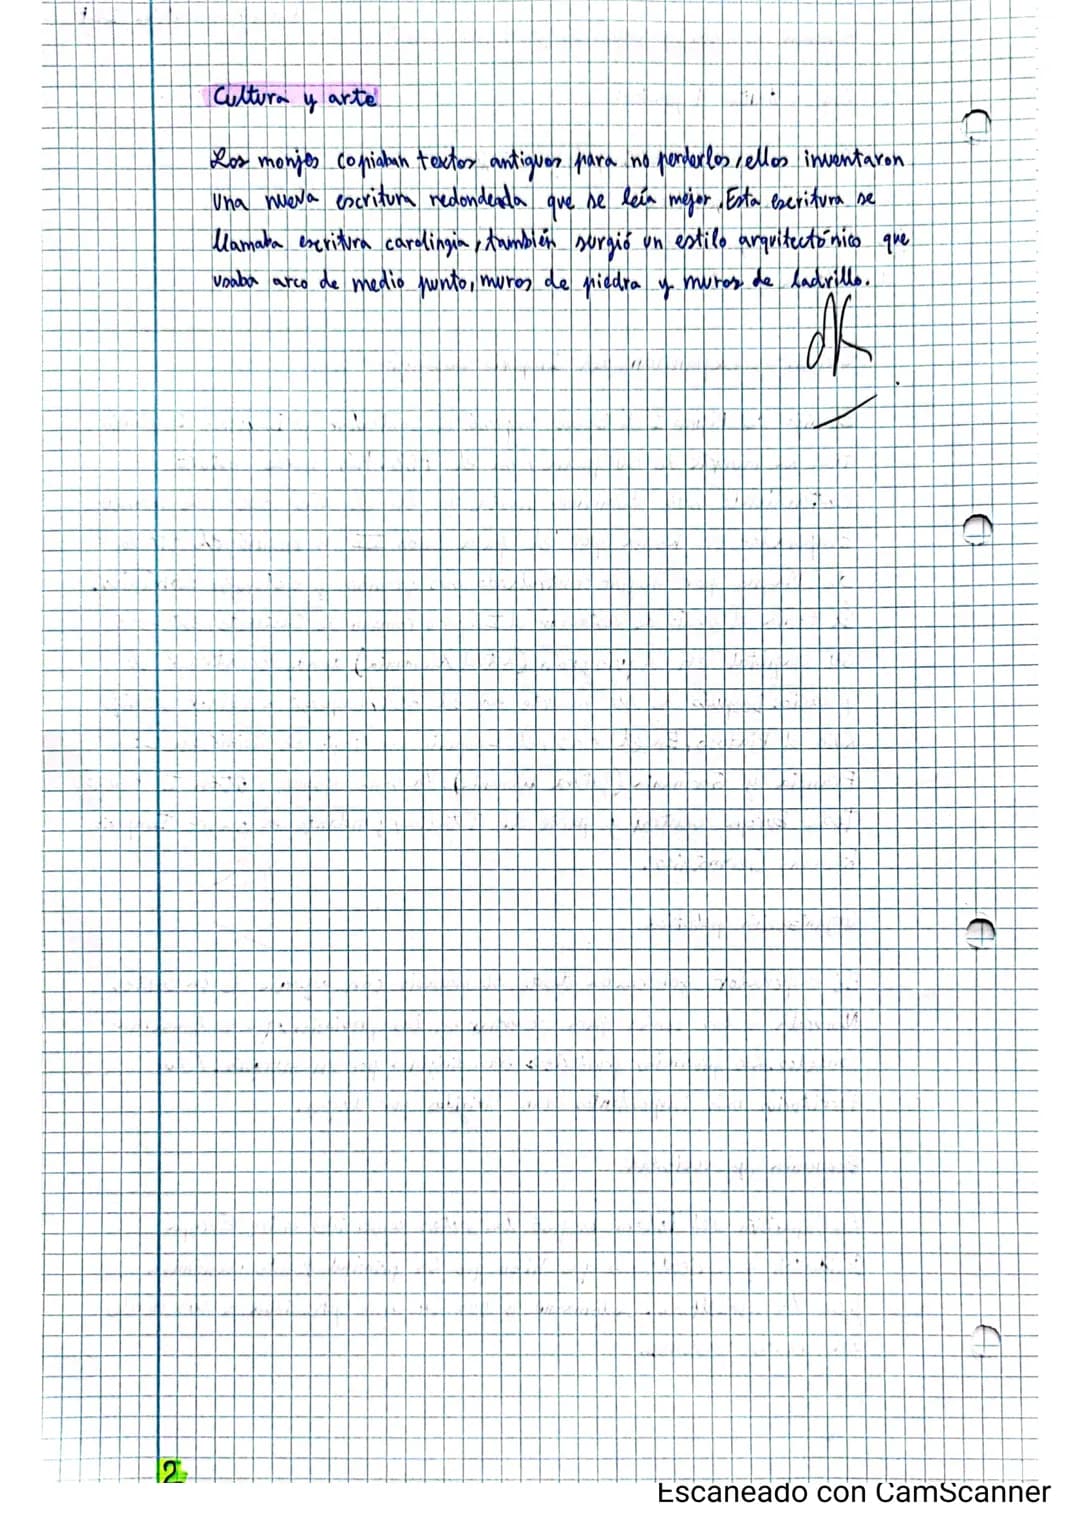 Cultura y arte
Los monjes copiaban textos antiguos para no perderlos, ellos inventaron
una nueva escritura redondeada que se leía mejor. Esta escritura se
llamaba escritura carolingia, también surgió un estilo arquitectónico que
usaba arco de medio punto, muros de piedra y muros de ladrillo.
2
Escaneado con CamScanner